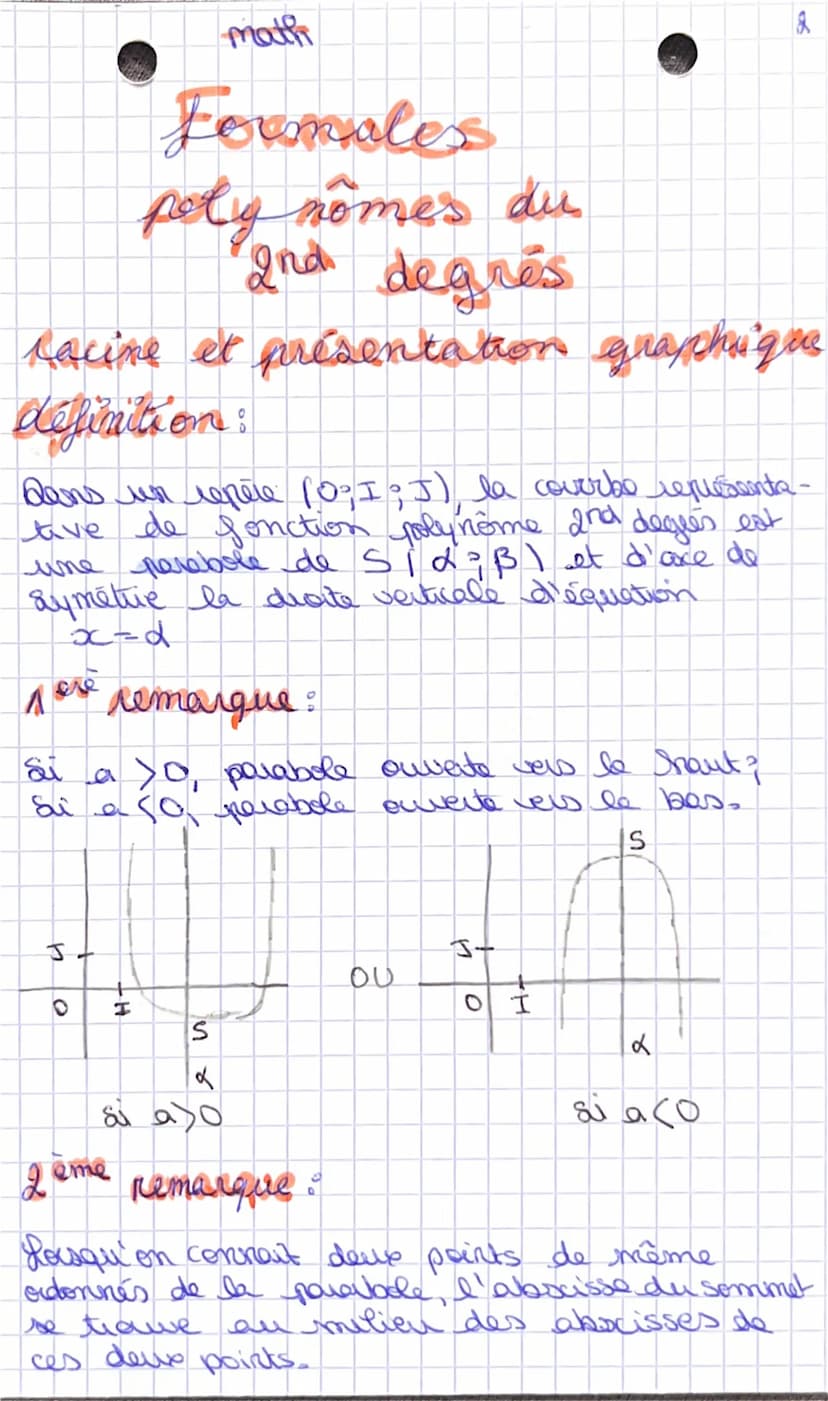 math
2
Formules
polynômes du
2nd degrés
racine et présentation graphique
définition :
Dans un repère (O;I;J), la courbe représenta-
tive de fonction polynôme 2nd degrés est
une parabole de S(α;β) et d'axe de
symétrie la droite verticale d'équation
x=α
1erè remarque :
Si a >0, parabole ouverte vers le haut;
Si a <0, parabole ouverte vers le bas.
J
O
I
S
α
si a>0
OU
S
J
O
I
α
si a<0
2ème remarque :
Lorsqu'on connait deux points de même
ordonnés de la parabole, l'abscisse du sommet
se trouve au milieu des abscisses de
ces deux points.